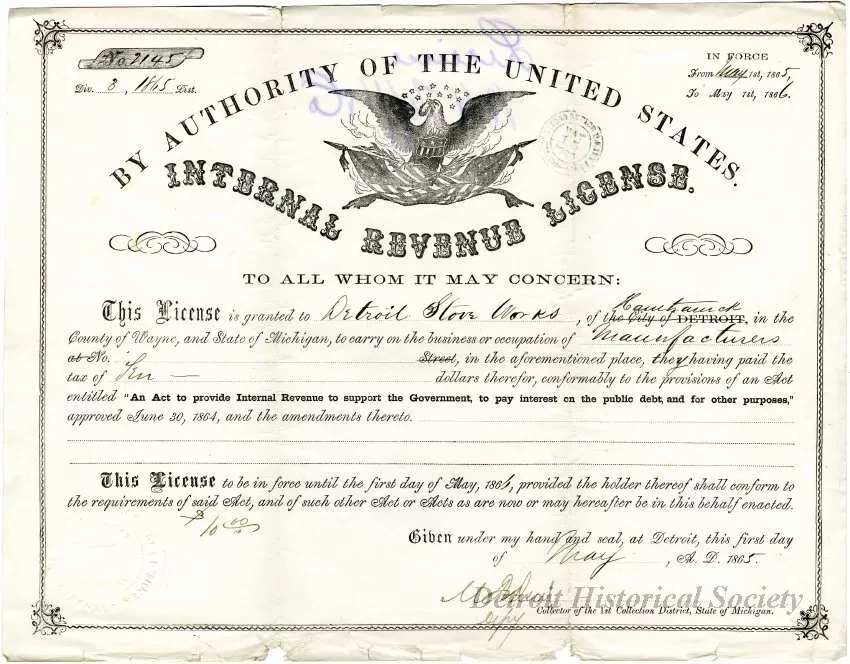 No 2145
Div. 3, 1865 Dist.
IN FORCE
From May 1st, 1865,
To May 1st, 1866.
BY AUTHORITY OF THE UNITED STATES.
INTERNAL REVENUE LICENSE.
TO ALL WHOM IT MAY CONCERN:
This License is granted to Detroit Stove Works, of the City of DETROIT, Hamtramck in the
County of Wayne, and State of Michigan, to carry on the business or occupation of Manufacturers
at No. Street, in the aforementioned place, they having paid the
tax of Ten — dollars therefor, conformably to the provisions of an Act
entitled "An Act to provide Internal Revenue to support the Government, to pay interest on the public debt, and for other purposes,"
approved June 30, 1864, and the amendments thereto.
This License to be in force until the first day of May, 1866, provided the holder thereof shall conform to
the requirements of said Act, and of such other Act or Acts as are now or may hereafter be in this behalf enacted.
$10 00
Given under my hand and seal, at Detroit, this first day
of May, A. D. 1865.
Detroit Historical Society
Collector of the 1st Collection District, State of Michigan.